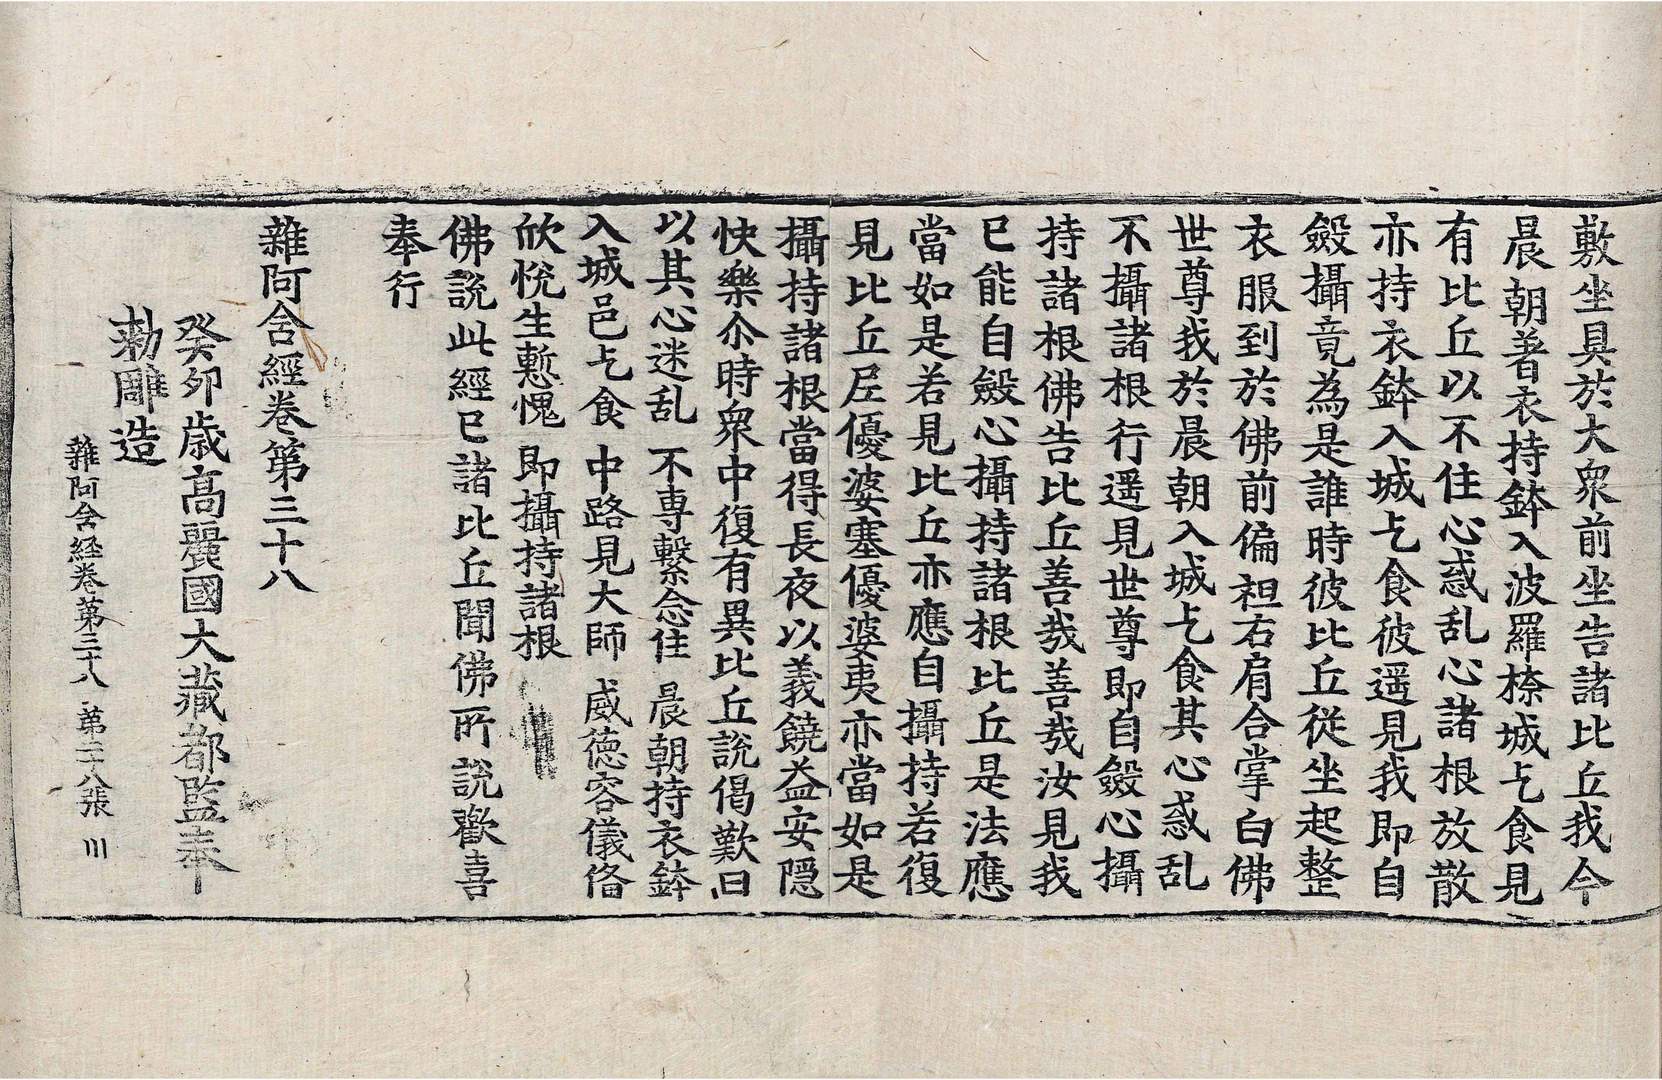 敷坐具於大衆前坐告諸比丘我今
晨朝著衣持鉢入波羅㮈城乞食見
有比丘以不住心惑乱心諸根放散
亦持衣鉢入城乞食彼遥見我即自
斂攝竟為是誰時彼比丘從坐起整
衣服到於佛前偏袒右肩合掌白佛
世尊我於晨朝入城乞食其心惑乱
不攝諸根行遥見世尊即自斂心攝
持諸根佛告比丘善哉善哉汝見我
已能自斂心攝持諸根比丘是法應
當如是若見比丘亦應自攝持若復
見比丘尼優婆塞優婆夷亦當如是
攝持諸根當得長夜以義饒益安隱
快樂尒時衆中復有異比丘說偈歎曰
以其心迷乱 不專繫念住 晨朝持衣鉢
入城邑乞食 中路見大師 威德容儀俻
欣悅生慙愧 即攝持諸根
佛說此經已諸比丘聞佛所說歡喜
奉行
雜阿含經卷第三十八
癸卯歲高麗國大藏都監奉
勅雕造
雜阿含経卷第三十八 第二十八張 川